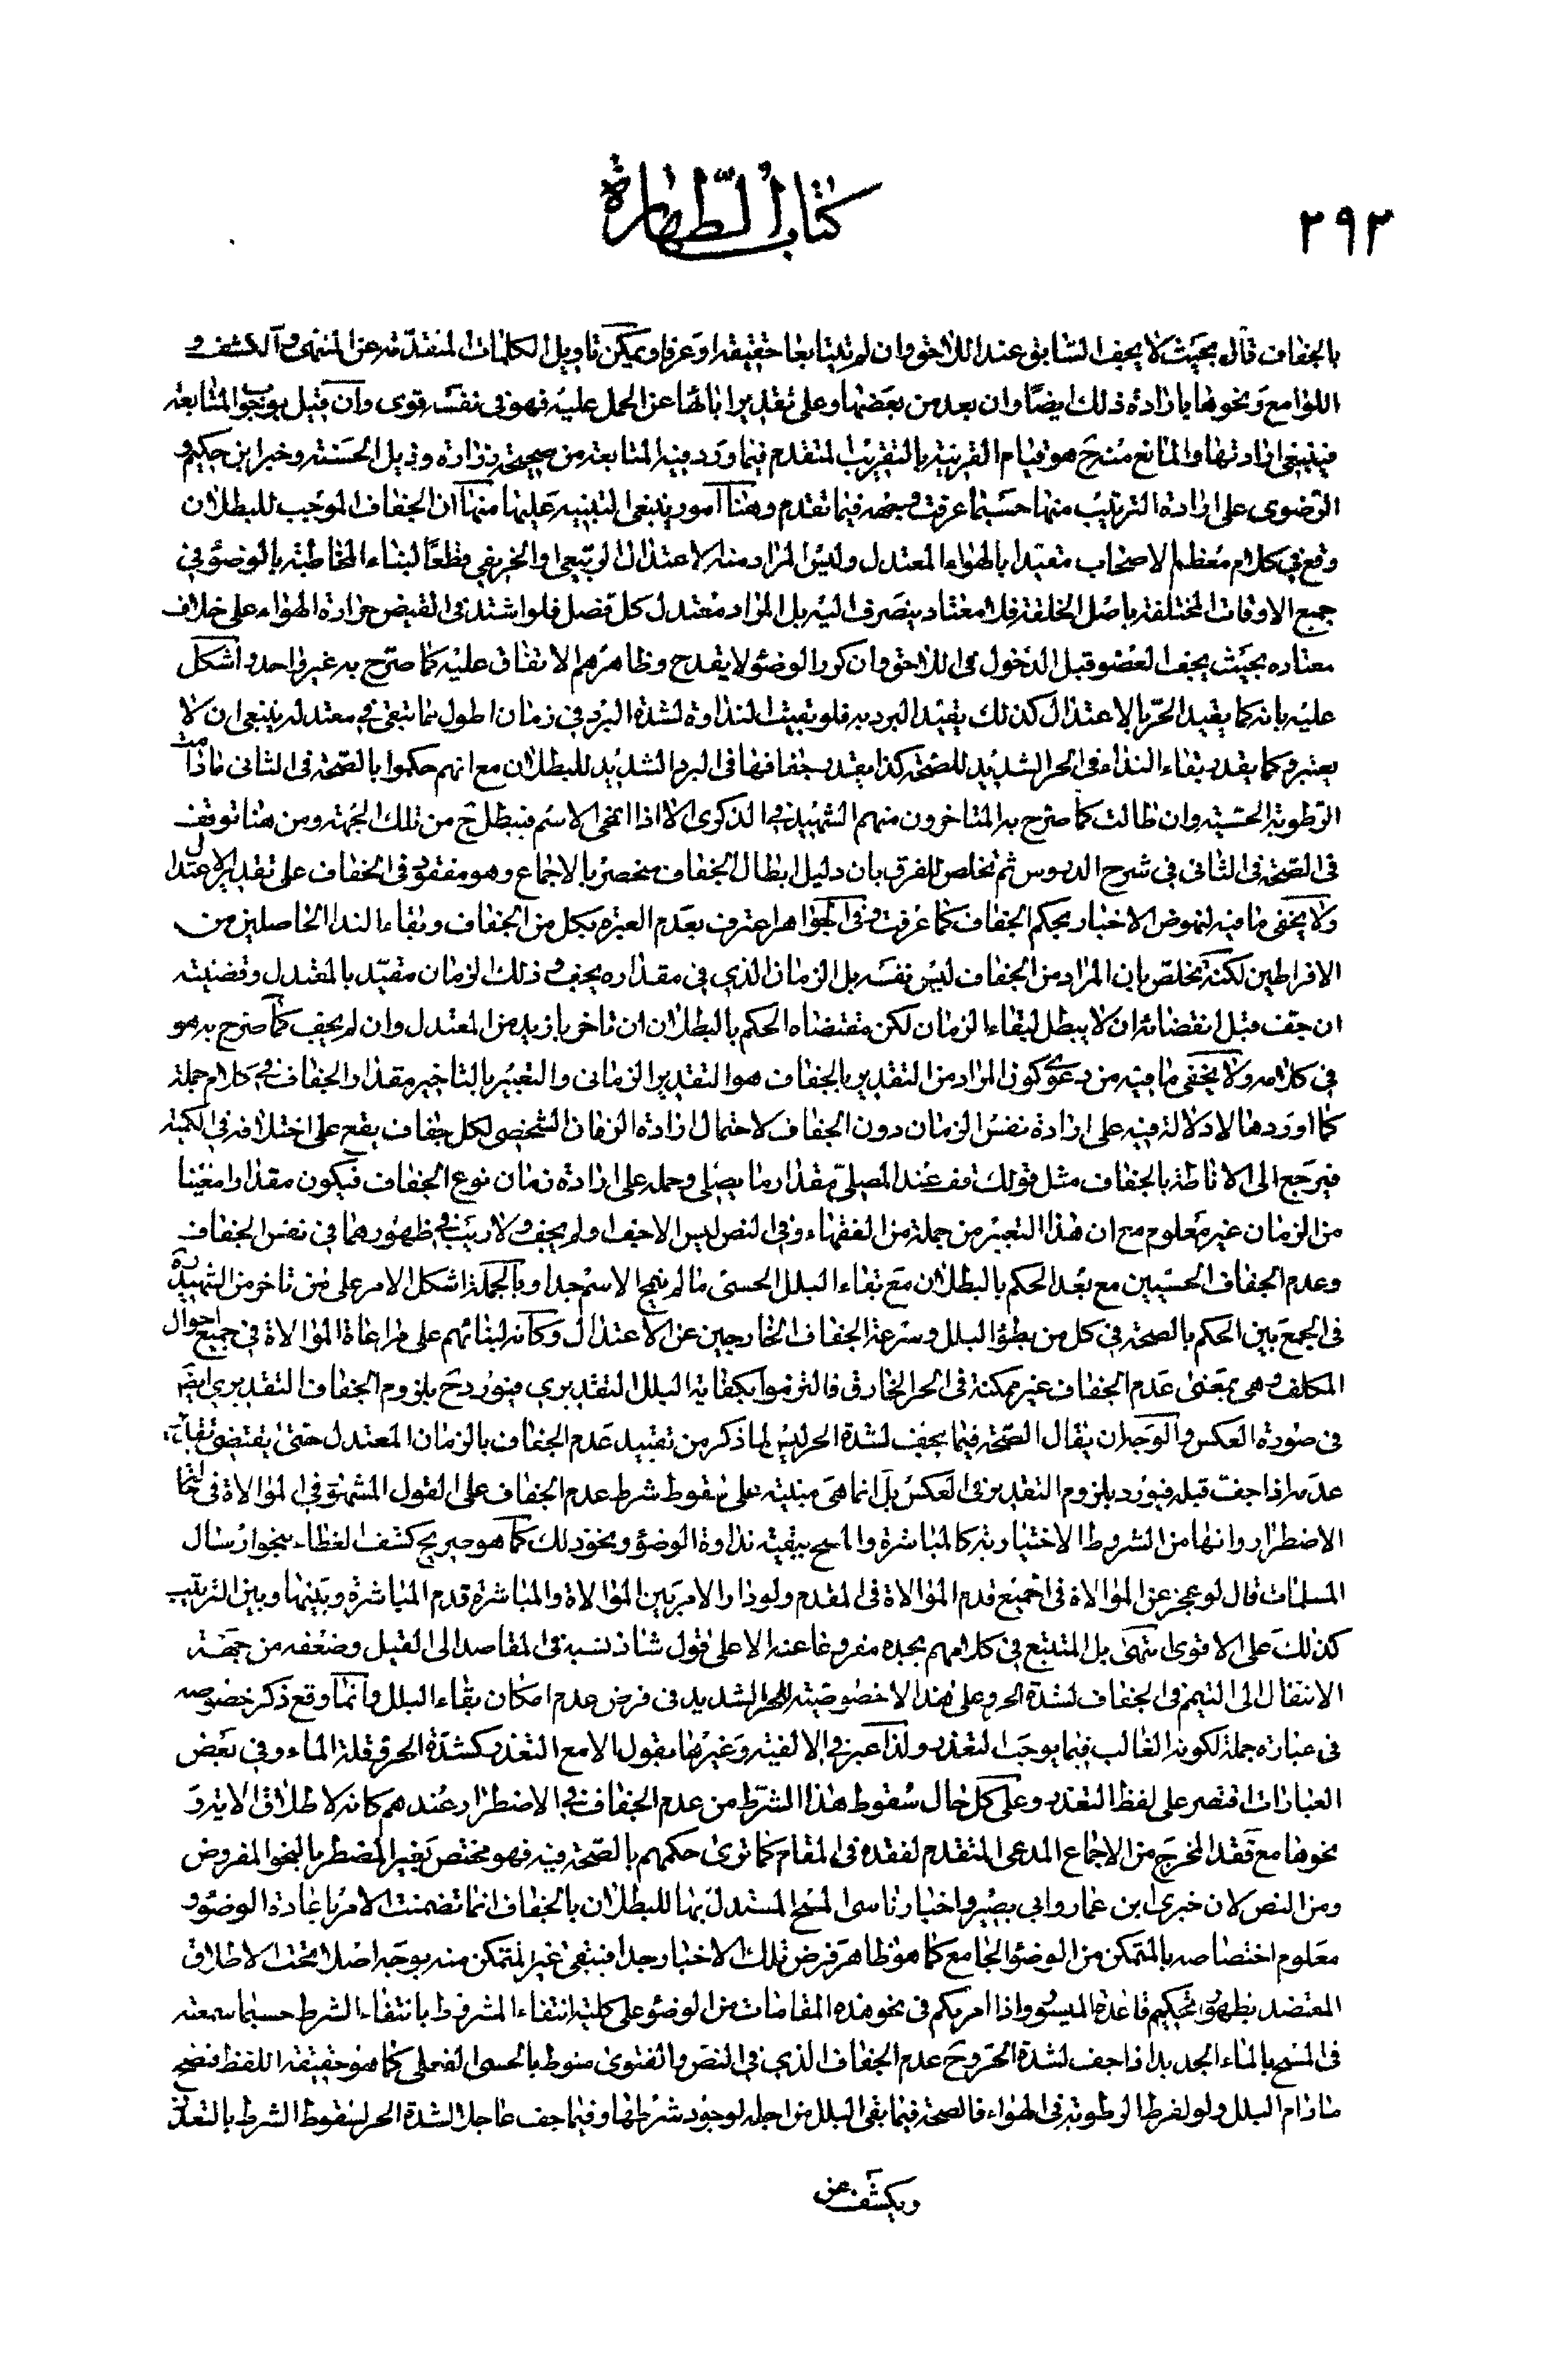 ٢٩٣
كتاب الطهارة
بالجفاف قال بحيث لا يجف السابق عند اللاحق وان لم يتتابعا حقيقة او عرفا ويمكن تاويل الكلمات المتقدمة عن المنتهى والكشف و
اللوامع ونحوها بارادة ذلك ايضا وان بعد من بعضها وعلى تقدير ابائها عن الحمل عليه فهو في نفسه قوى وان قيل بوجوب المتابعة
فينبغي ارادتها والمانع منه ح هو قيام القرينة بالتقريب المتقدم فيما ورد فيه المتابعة من صحيحة زرارة وذيل الحسنة وخبر ابن حكيم و
الرضوى على ارادة الترتيب منها حسبما عرفت وجهه فيما تقدم وهنا امور ينبغى التنبيه عليها منها ان الجفاف الموجب للبطلان
وقع في كلام معظم الاصحاب مقيدا بالهواء المعتدل وليس المراد منه الاعتدال الربيعى والخريفى قطعا لبناء المخاطبة بالوضوء في
جميع الاوقات المختلفة باصل الخلقة فلا معتاد ينصرف اليه بل المراد معتدل كل فصل فلو اشتد في القيض حرارة الهواء على خلاف
معتاده بحيث يجف العضو قبل الدخول في اللاحق وان كرر الوضوء لا يقدح وظاهرهم الاتفاق عليه كما صرح به غير واحد واشكل
عليه بانه كما يقيد الحر بالاعتدال كذلك يقيد البرد به فلو بقيت النداوة لشدة البرد في زمان اطول مما تبقى في معتدله ينبغى ان لا
يعتبر وكما يقدر بقاء النداء في الحر الشديد للصحة كذا يقدر جفافها في البرد الشديد للبطلان مع انهم حكموا بالصحة في الثانى مادامت
الرطوبة الحسية وان طالت كما صرح به المتاخرون منهم الشهيد في الذكرى الا اذا انمحى الاسم فيبطل ح من تلك الجهة ومن هنا توقف
في الصحة في الثانى في شرح الدروس ثم تخلص للفرق بان دليل ابطال الجفاف منحصر بالاجماع وهو مفقود في الجفاف على تقدير الاعتدال
ولا يخفى ما فيه لنهوض الاخبار بحكم الجفاف كما عرفت وفى الجواهر اعترف بعدم العبرة بكل من الجفاف وبقاء الندا الحاصلين من
الافراطين لكنه تخلص بان المراد من الجفاف ليس نفسه بل الزمان الذي في مقداره يجف وذلك الزمان مقيد بالمعتدل وقضيته
ان جف قبل انقضائه ان لا يبطل لبقاء الزمان لكن مقتضاه الحكم بالبطلان ان تاخر بازيد من المعتدل وان لم يجف كما صرح به هو
في كلامه ولا يخفى ما فيه من دعوى كون المراد من التقدير بالجفاف هو التقدير الزمانى والتعبير بالتاخير مقدار الجفاف في كلام جملة
كما اوردها لا دلالة فيه على ارادة نفس الزمان دون الجفاف لاحتمال ارادة الزمان الشخصى لكل جفاف يقع على اختلافه في الكمية
فيرجع الى الاناطة بالجفاف مثل قولك قف عند المصلى مقدار ما يصلى وحمله على ارادة زمان نوع الجفاف فيكون مقدارا معينا
من الزمان غير معلوم مع ان هذا التعبير من جملة من الفقهاء وفى النص ليس الا جف ولم يجف ولا ريب في ظهورهما في نفس الجفاف
وعدم الجفاف الحسيين مع بعد الحكم بالبطلان مع بقاء البلل الحسى ما لم ينمح الاسم جدا وبالجملة اشكل الامر على من تاخر من الشهيد ره
في الجمع بين الحكم بالصحة في كل من بطؤ البلل وسرعة الجفاف الخارجين عن الاعتدال وكانه لبنائهم على مراعاة الموالاة في جميع احوال
المكلف وهى بمعنى عدم الجفاف غير ممكنة في الحر الخارق فالتزموا بكفاية البلل التقديري فيورد ح بلزوم الجفاف التقديري ايضا
في صورة العكس والوجه ان يقال الصحة فيما يجف لشدة الحر ليس لما ذكر من تقييد عدم الجفاف بالزمان المعتدل حتى يقتضى
عدمه اذا جفت قبله فيورد بلزوم التقدير في العكس بل انما هى مبنية على سقوط شرط عدم الجفاف على القول المشهور في الموالاة في حال
الاضطرار وانها من الشروط الاختيارية كالمباشرة والمسح ببقية نداوة الوضوء ونحو ذلك كما هو صريح كشف الغطاء بنحو ارسال
المسلمات قال لو عجز عن الموالاة في الجميع قدم الموالاة في المقدم ولو دار الامر بين الموالاة والمباشرة قدم المباشرة وبينها وبين الترتيب
كذلك على الاقوى انتهى بل المتتبع في كلامهم يجده مفروغا عنه الا على قول شاذ نسبه في المقاصد الى القيل وضعفه من جهة
الانتقال الى التيمم في الجفاف لشدة الحر وعلى هذا لا خصوصية للحر الشديد في فرض عدم امكان بقاء البلل وانما وقع ذكر خصوصه
في عبارة جملة لكونه الغالب فيما يوجب التعذر ولذا عبر في الالفية وغيرها بقول الا مع التعذر كشدة الحر وقلة الماء وفي بعض
العبارات اقتصر على لفظ التعذر وعلى كل حال سقوط هذا الشرط من عدم الجفاف في الاضطرار عندهم كانه لاطلاق الاية و
نحوها مع فقد المخرج من الاجماع المدعى المتقدم لفقده في المقام كما ترى حكمهم بالصحة فيه فهو مختص بغير المضطر بالنحو المفروض
ومن النص لان خبرى ابن عمار وابي بصير واخبار ناسى المسح المستدل بها للبطلان بالجفاف انما تضمنت الامر باعادة الوضوء و
معلوم اختصاصه بالمتمكن من الوضوء الجامع كما هو ظاهر فرض تلك الاخبار جدا فيبقى غير المتمكن منه بوجه اصلا تحت الاطلاق
المعتضد بظهور تحكيم قاعدة الميسور واذا امرتكم في نحو هذه المقامات من الوضوء على كلية انتفاء المشروط بانتفاء الشرط حسبما سمعته
في المسح بالماء الجديد اذا جف لشدة الحر وح عدم الجفاف الذي في النص والفتوى منوط بالحسى الفعلى كما هو حقيقة اللفظ فيصح
مادام البلل ولو لفرط الرطوبة في الهواء فالصحة فيما بقى البلل من اجله لوجود شرطها وفيما جف عاجلا لشدة الحر لسقوط الشرط بالتعذر
ويكشف عن